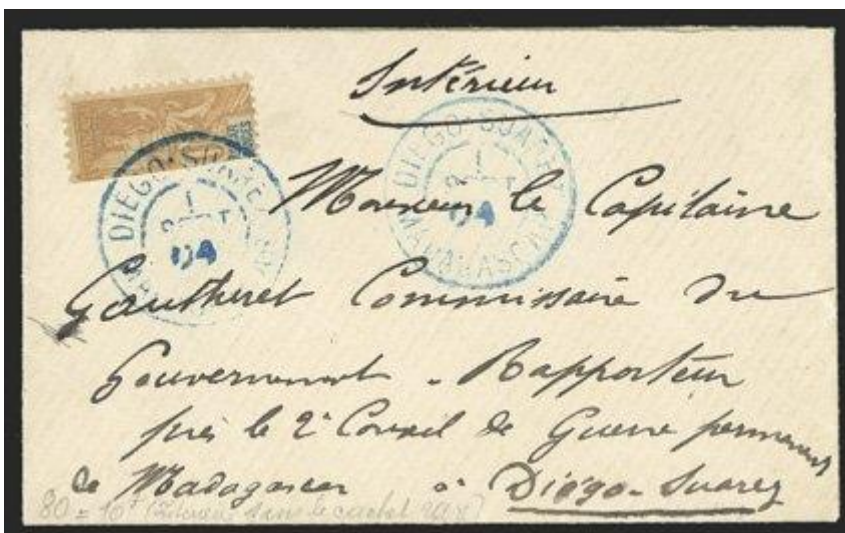 Intérieur
DIEGO-SUAREZ
1
AOUT
04
MADAGASCAR
DIEGO-SUAREZ
1
AOUT
04
MADAGASCAR
Monsieur le Capitaine
Gautheret Commissaire du
Gouvernement - Rapporteur
près le 2e Conseil de Guerre permanent
de Madagascar à Diégo-Suarez
80 = 10f (Intérieur sans le cachet